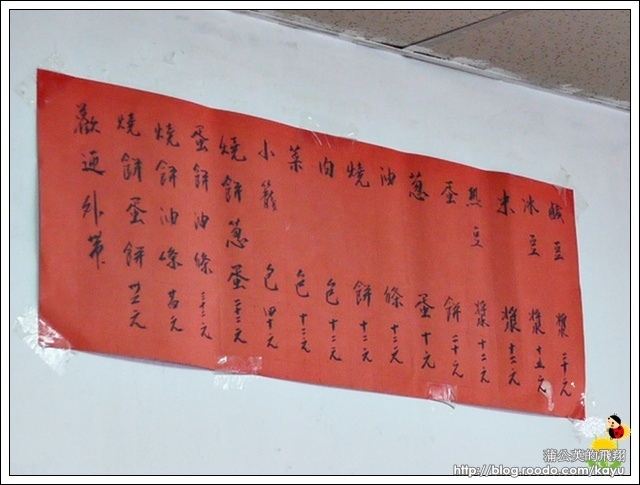 鹹豆漿二十元
冰豆漿十五元
米漿十二元
熱豆漿十二元
蛋餅二十元
蔥蛋十元
油條十二元
燒餅十二元
肉包十二元
菜包十二元
小籠包四十元
燒餅蔥蛋二十二元
蛋餅油條三十二元
燒餅油條廿四元
燒餅蛋餅卅二元
歡迎外帶
蒲公英的飛翔
http://blog.roodo.com/kayu